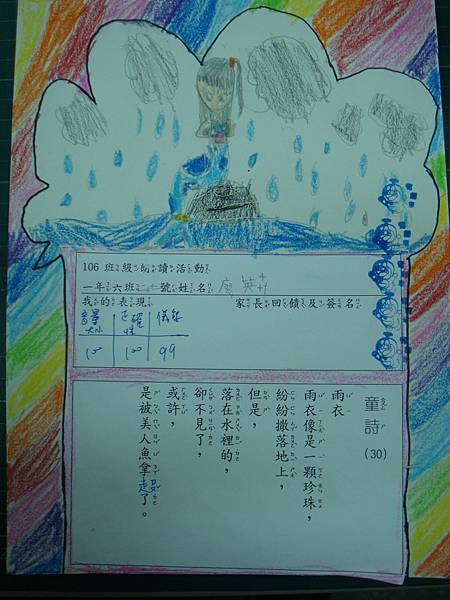 106 班級朗讀活動
一年六班 號姓名
我的表現 家長回饋及簽名
音量大小 正確性 儀態
100 100 99
童詩(30)
雨衣
雨衣像是一顆珍珠，
紛紛撒落地上，
但是，
落在水裡的，
卻不見了，
或許，
是被美人魚拿走了。